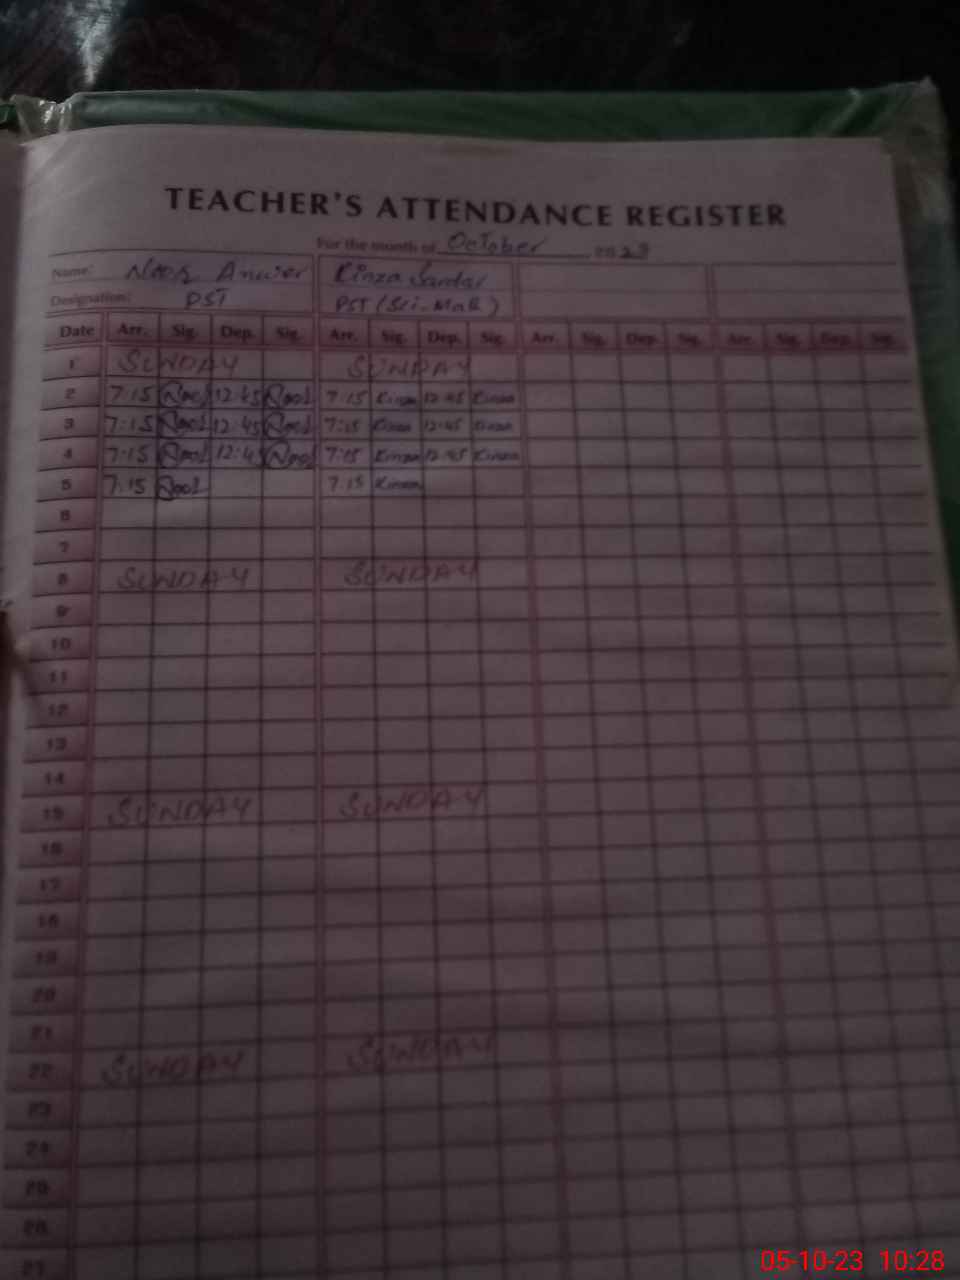 TEACHER'S ATTENDANCE REGISTER
For the month of October 2023
Name: Noor Anwer Kinza Sardar
Designation: PST PST (Sci-Math)
Date Arr. Sig. Dep. Sig. Arr. Sig. Dep. Sig. Arr. Sig. Dep. Sig. Arr. Sig. Dep. Sig.
1 SUNDAY SUNDAY
2 7:15 Noor 12:45 Noor 7:15 Kinza 12:45 Kinza
3 7:15 Noor 12:45 Noor 7:15 Kinza 12:45 Kinza
4 7:15 Noor 12:45 Noor 7:15 Kinza 12:45 Kinza
5 7:15 Noor 7:15 Kinza
6
7
8 SUNDAY SUNDAY
9
10
11
12
13
14
15 SUNDAY SUNDAY
16
17
18
19
20
21
22 SUNDAY SUNDAY
23
24
25
26
27
05-10-23 10:28